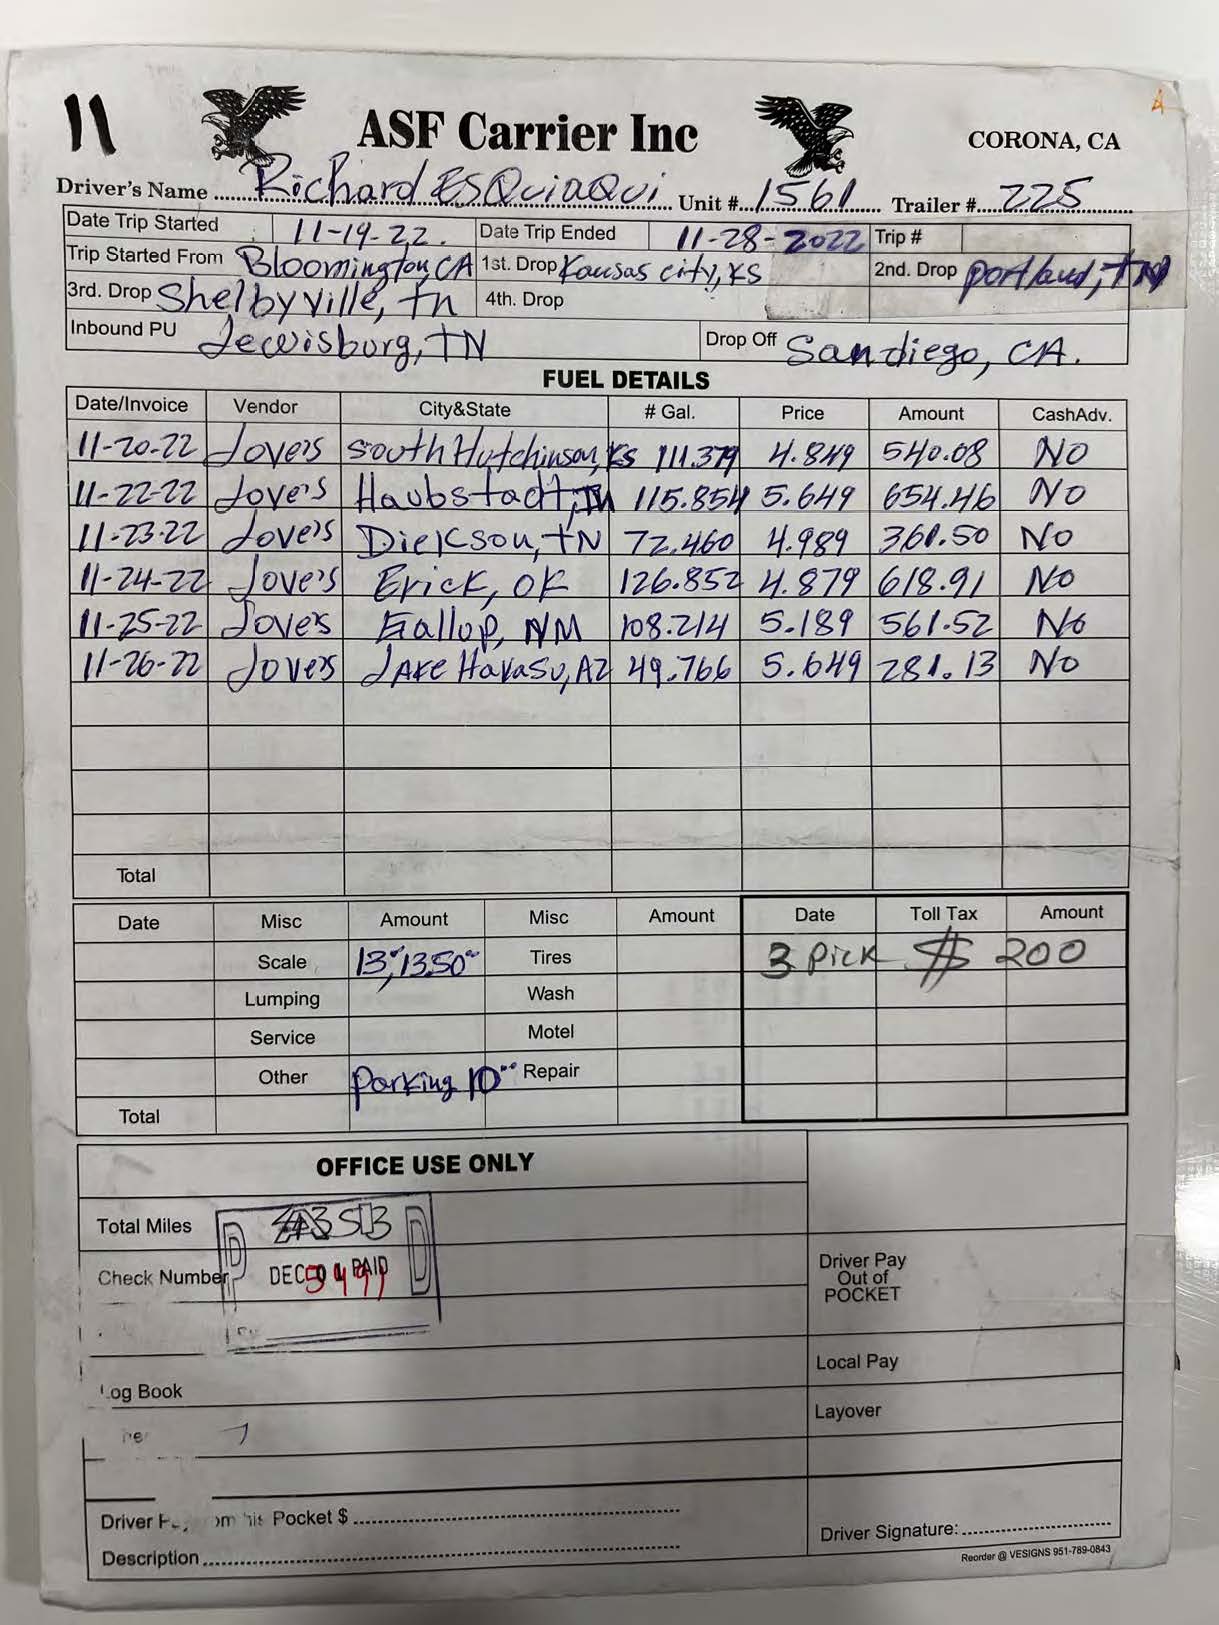 11
ASF Carrier Inc
CORONA, CA
Driver's Name Richard ESQuiaQui Unit # 1561 Trailer # 225
Date Trip Started 11-19-22. Date Trip Ended 11-28-2022 Trip #
Trip Started From Bloomington, CA 1st. Drop Kansas city, KS 2nd. Drop portland, TN
3rd. Drop Shelbyville, tn 4th. Drop
Inbound PU Lewisburg, TN Drop Off San diego, CA.
FUEL DETAILS
Date/Invoice Vendor City&State # Gal. Price Amount CashAdv.
11-20-22 Loves South Hutchinson, KS 111.379 4.849 540.08 NO
11-22-22 Love's Haubstadt, IN 115.854 5.649 654.46 NO
11-23-22 Love's Dickson, TN 72.460 4.989 361.50 NO
11-24-22 Love's Erick, OK 126.852 4.879 618.91 No
11-25-22 Loves Gallup, NM 108.214 5.189 561.52 No
11-26-22 Loves LAKE Havasu, AZ 49.766 5.649 281.13 No
Total
Date Misc Amount Misc Amount Date Toll Tax Amount
Scale 13, 13.50 Tires 3 pick $ 200
Lumping Wash
Service Motel
Other parking 10 Repair
Total
OFFICE USE ONLY
Total Miles 3513
Check Number DEC 01 PAID 5491
Driver Pay Out of POCKET
Local Pay
Log Book
Layover
Driver Pocket $
Driver Signature:
Description
Reorder @ VESIGNS 951-789-0843